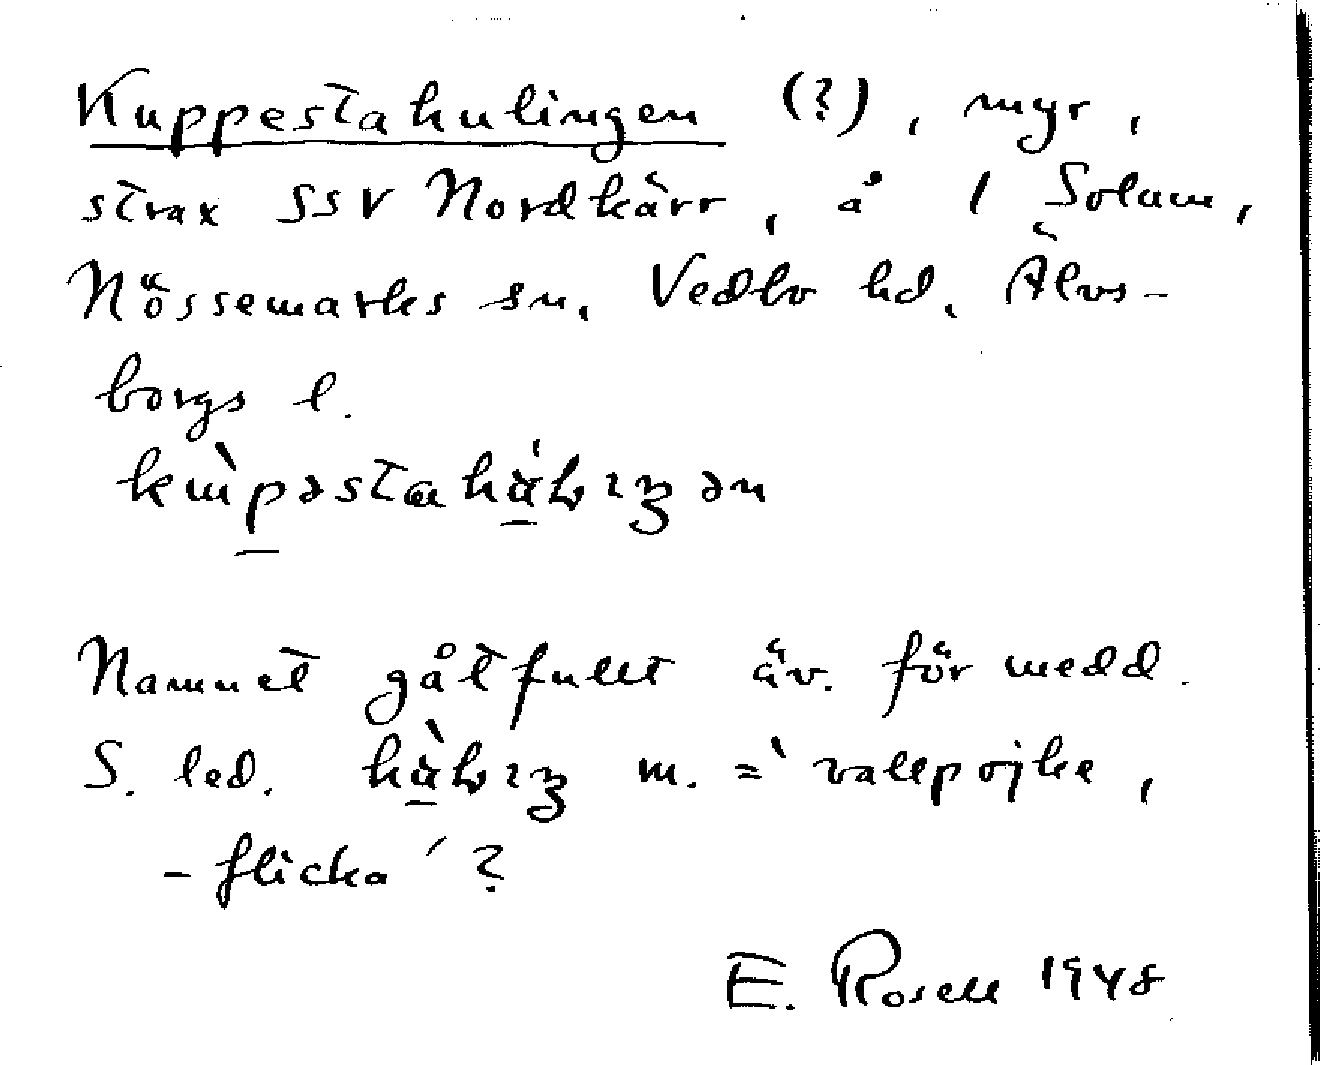 Kuppestahulingen (?), myr,
strax SSV Nordkärr, å 1 Solum,
Nössemarks sn, Vedbo hd. Älvs-
borgs l.
Namnet gåtfullt äv. för medd.
S. led. m. = 'vallpojke,
-flicka'?
E. Rosell 1948